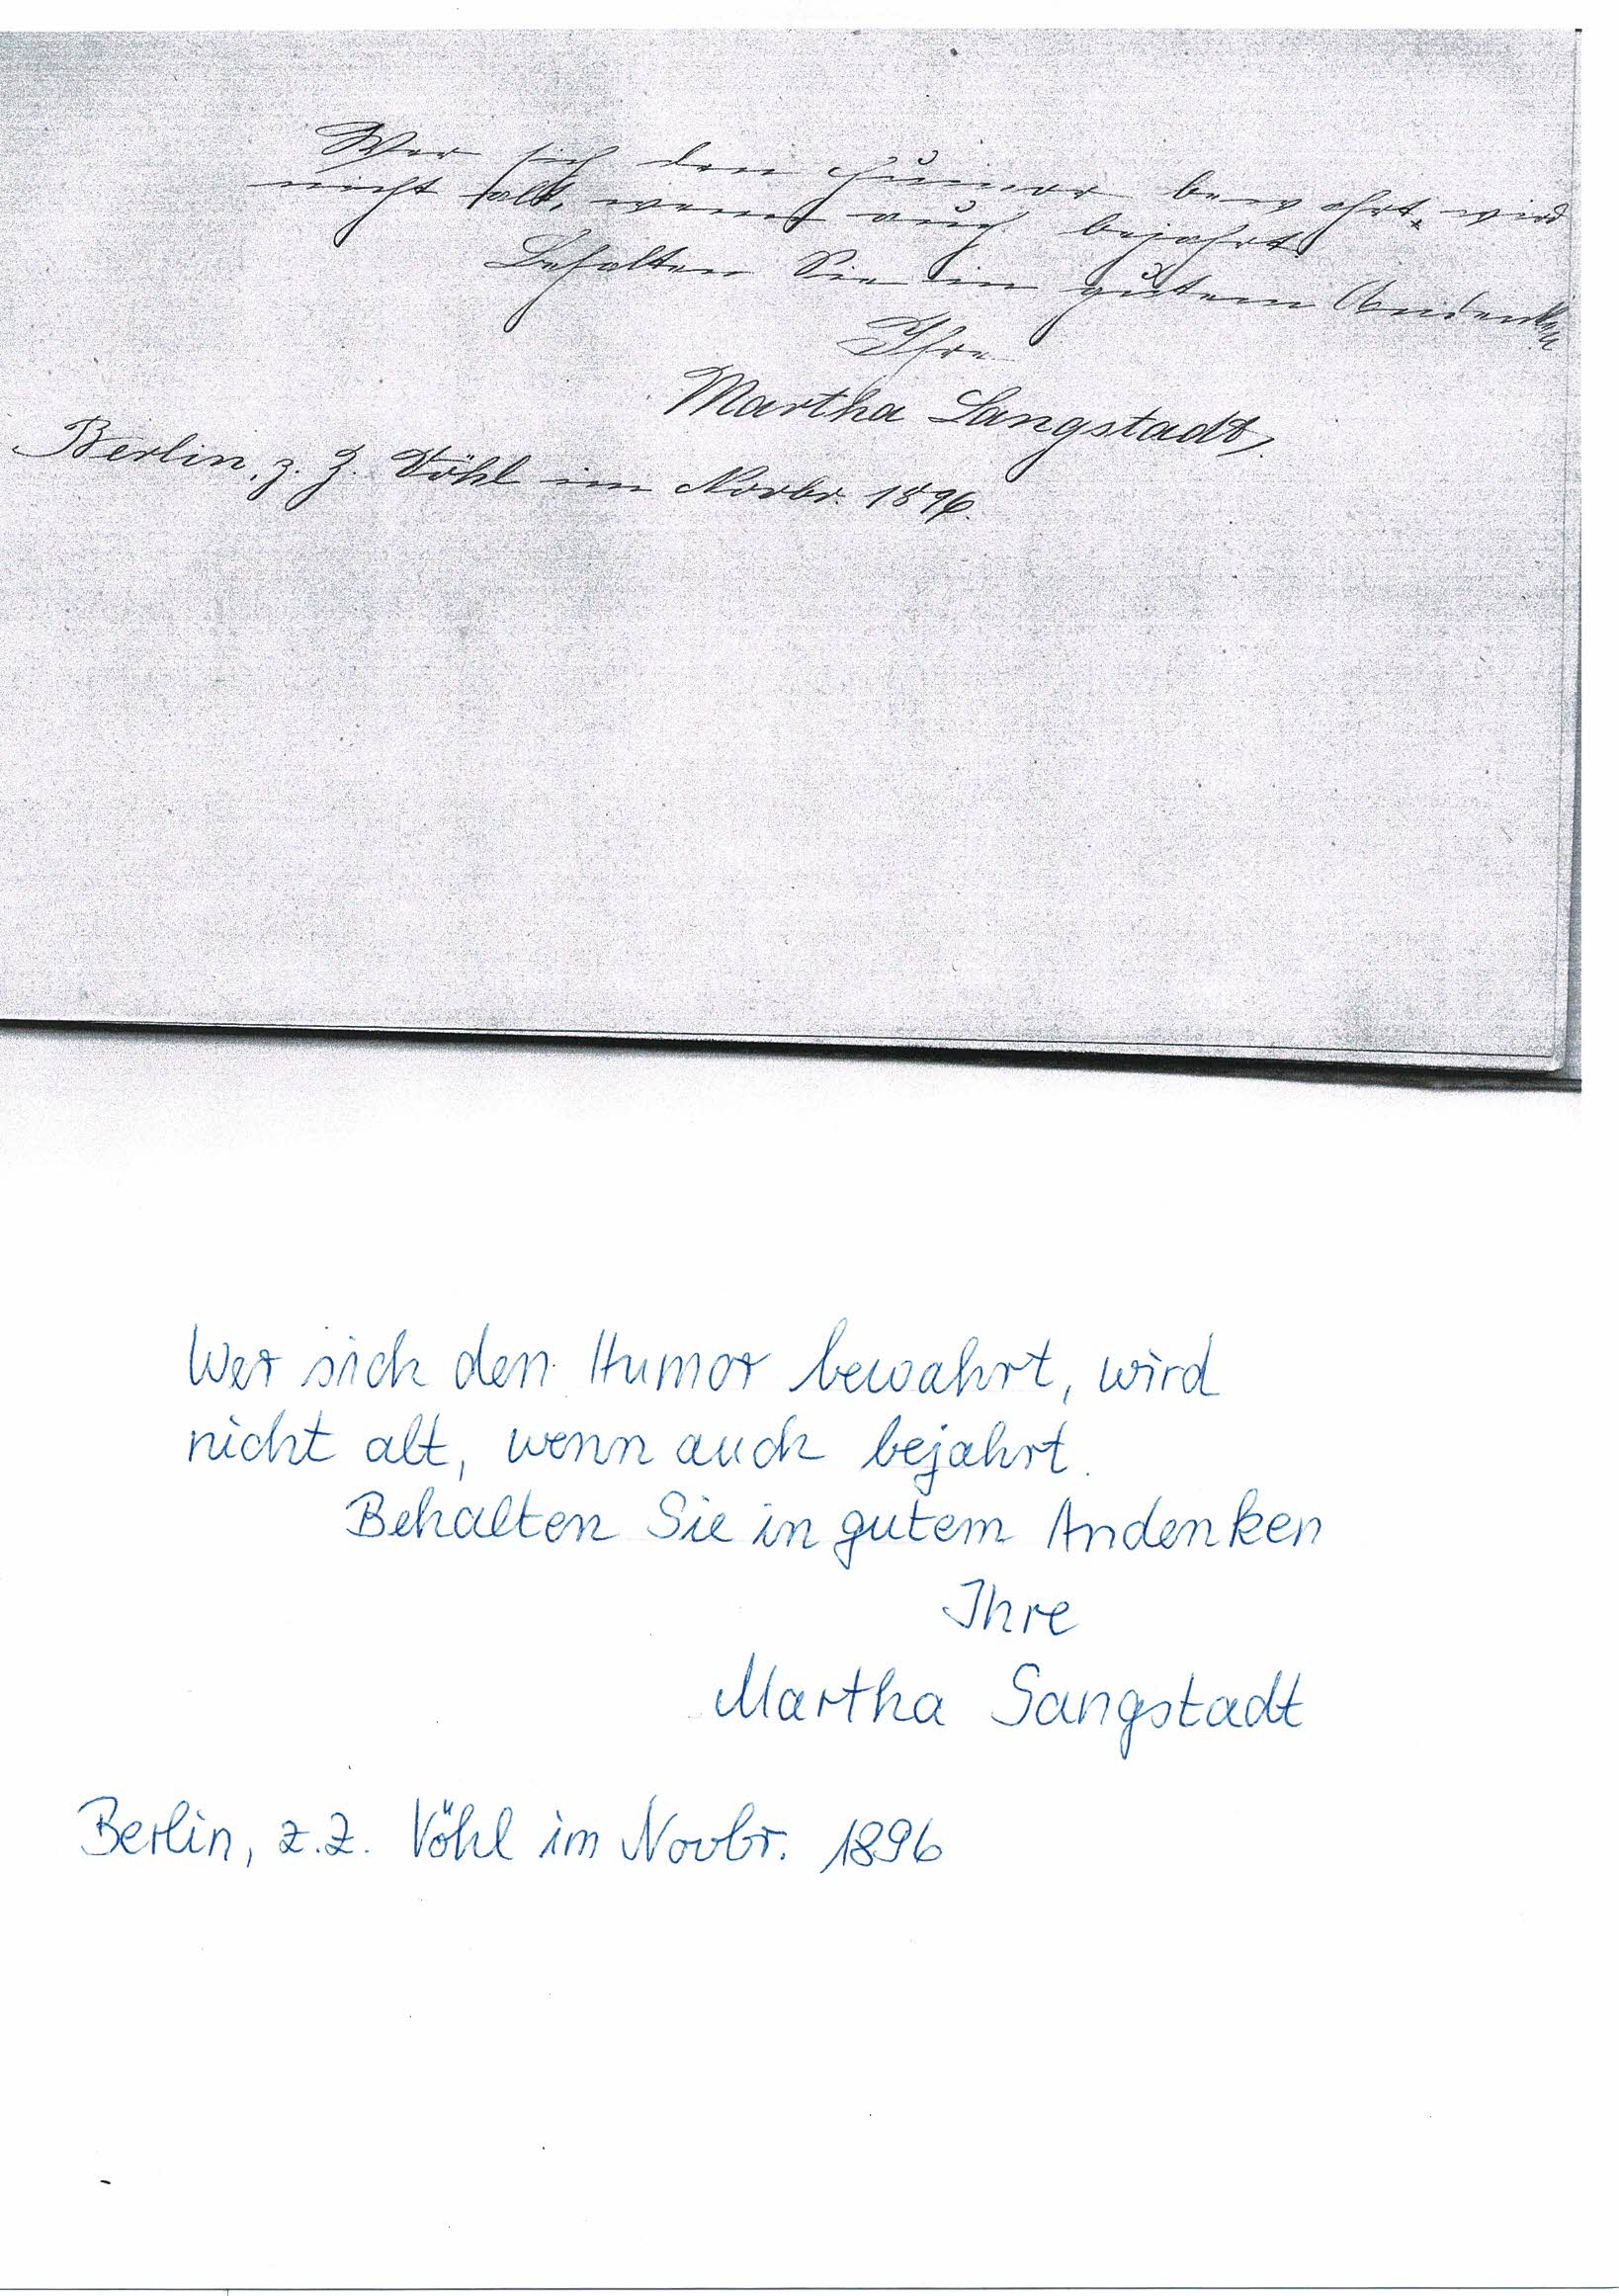 Wer sich den Humor bewahrt, wird
nicht alt, wenn auch bejahrt.
Behalten Sie in gutem Andenken
Ihre
Martha Langstadt.
Berlin, z. Z. Vöhl im Novbr. 1896.
Wer sich den Humor bewahrt, wird
nicht alt, wenn auch bejahrt.
Behalten Sie in gutem Andenken
Ihre
Martha Sangstadt
Berlin, z.Z. Vöhl im Novbr. 1896